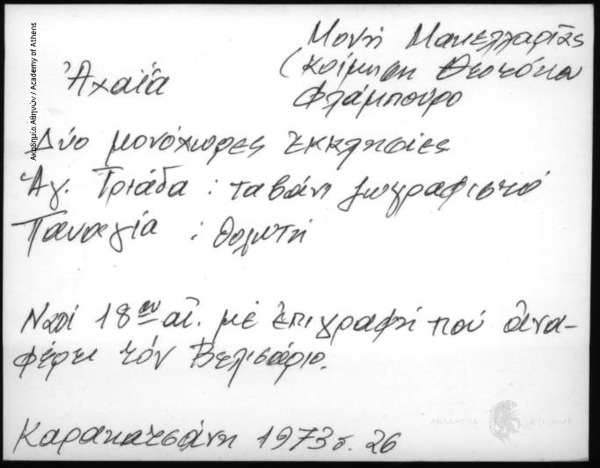 Ἀχαΐα
Μονή Μακελλαριᾶς
(Κοίμηση Θεοτόκου
Φλάμπουρο
Δύο μονόχωρες ἐκκλησίες
Ἁγ. Τριάδα : ταβάνι ζωγραφιστό
Παναγία : θολωτή
Ναοί 18ου αἰ. μέ ἐπιγραφή πού ἀνα-
φέρει τόν Βελισάριο.
Καρακατσάνη 1973 σ. 26
Ακαδημία Αθηνών / Academy of Athens